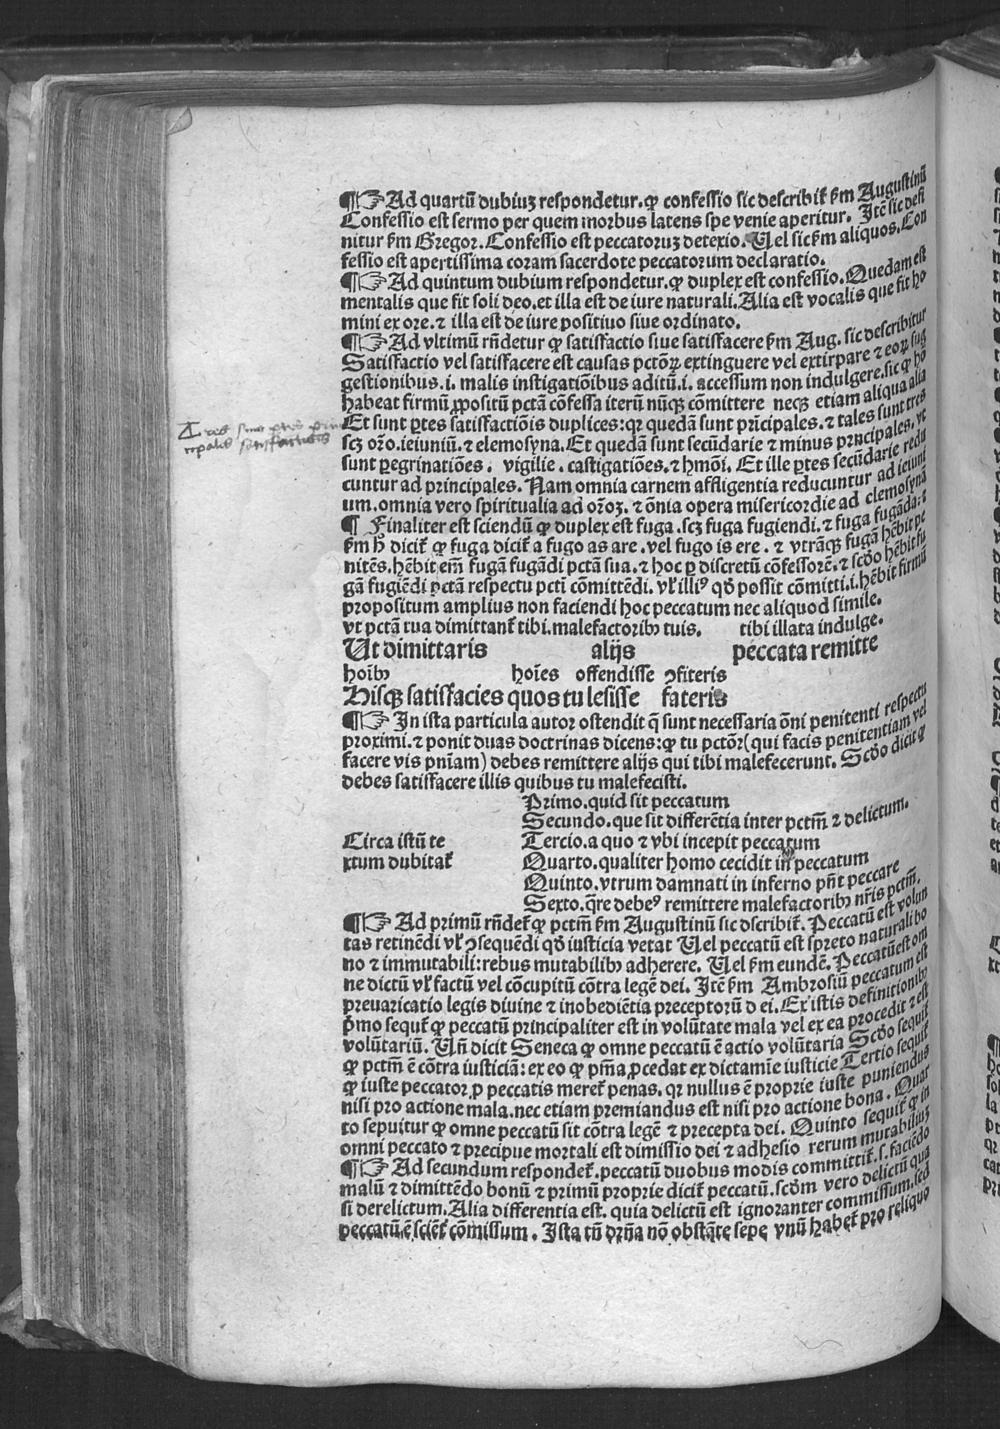 ¶☞Ad quartū dubiuʒ respondetur.ꝙ confessio sic describit̃ ẜm Augustinū
Confessio est sermo per quem morbus latens spe venie aperitur. Jtē sic defi
nitur ẜm Gregor.Confessio est peccatoruʒ detexio. Uel sic ẜm aliquos.Con
fessio est apertissima coram sacerdote peccatorum declaratio.
¶☞Ad quintum dubium respondetur.ꝙ duplex est confessio.Quedam est
mentalis que fit soli deo.et illa est de iure naturali.Alia est vocalis que fit ho
mini ex ore.⁊ illa est de iure positiuo siue ordinato.
¶☞Ad vltimū rn̄detur ꝙ satisfactio siue satisfacere ẜm Aug. sic describitur
Satisfactio vel satisfacere est causas pctōꝝ extinguere vel extirpare ⁊ eoꝝ sug
gestionibus.i. malis instigatiōibus aditū.i. accessum non indulgere.sic ꝙ ho
habeat firmū ꝓpositū pctā cōfessa iterū nūqꝫ cōmittere neqꝫ etiam aliqua alia
Tres sunt ptes prin
cipales satisfactionis
Et sunt ꝑtes satisfactiōis duplices:qꝛ quedā sunt prīcipales.⁊ tales sunt tres
scʒ oꝛ̄o.ieiuniū.⁊ elemosyna.Et quedā sunt secūdarie ⁊ minus prīncipales.vt
sunt ꝑegrinatiōes. vigilie. castigatiōes.⁊ hmōi. Et ille ꝑtes secūdarie redu
cuntur ad principales. Nam omnia carnem affligentia reducuntur ad ieiuni
um.omnia vero spiritualia ad oꝛ̄oʒ. ⁊ ōnia opera misericordie ad elemosynā
¶ Finaliter est sciendū ꝙ duplex est fuga .scʒ fuga fugiendi.⁊ fuga fugāda:⁊
ẜm ħ dicit̃ ꝙ fuga dicit̃ a fugo as are .vel fugo is ere . ⁊ vtrāqꝫ fugā hēbit pe
nitēs.hēbit em̄ fugā fugādi pctā sua.⁊ hoc ꝑ discretū cōfessorē.⁊ scd̄o hēbit fu
gā fugiēdi pctā respectu pcti cōmittēdi. vl̓ illiꝰ qd̄ possit cōmitti.i.hēbit firmū
propositum amplius non faciendi hoc peccatum nec aliquod simile.
vt pctā tua dimittant̃ tibi.malefactoribꝫ tuis. tibi illata indulge.
Ut dimittaris alijs peccata remitte
hoībꝫ hoīes offendisse ꝯfiteris
Hisqꝫ satisfacies quos tu lesisse fateris
¶☞ Jn ista particula autor ostendit q̄ sunt necessaria ōni penitenti respectu
proximi.⁊ ponit duas doctrinas dicens:ꝙ tu pctōr(qui facis penitentiam vel
facere vis pn̄iam) debes remittere alijs qui tibi malefecerunt. Scd̄o dicit ꝙ
debes satisfacere illis quibus tu malefecisti.
Primo.quid sit peccatum
Secundo.que sit differētia inter pctm̄ ⁊ delictum.
Circa istū te Tercio.a quo ⁊ vbi incepit peccatum
xtum dubitat̃ Quarto.qualiter homo cecidit in peccatum
Quinto.vtrum damnati in inferno pn̄t peccare
Sexto.q̄re debeꝰ remittere malefactoribꝫ nr̄is pctm̄.
¶☞ Ad primū rn̄det̃ ꝙ pctm̄ ẜm Augustinū sic dscribit̃. Peccatū est volun
tas retinēdi vl̓ ꝯsequēdi qd̄ iusticia vetat Uel peccatū est spreto naturali bo
no ⁊ immutabili:rebus mutabilibꝫ adherere. Uel ẜm eundē. Peccatū est om
ne dictū vl̓ factū vel cōcupitū cōtra legē dei. Jtē ẜm Ambrosiū peccatum est
preuaricatio legis diuine ⁊ inobediētia preceptorū d ei. Ex istis definitionibꝫ
p̄mo sequit̃ ꝙ peccatū principaliter est in volūtate mala vel ex ea procedit ⁊ est
volūtariū. Un̄ dicit Seneca ꝙ omne peccatū ē actio volūtaria Scd̄o sequit̃
ꝙ pctm̄ ē cōtra iusticiā: ex eo ꝙ pm̄a ꝓcedat ex dictamīe iusticie Tertio sequit̃
ꝙ iuste peccator ꝓ peccatis meret̃ penas. qꝛ nullus ē proprie iuste puniendus
nisi pro actione mala.nec etiam premiandus est nisi pro actione bona. Quar
to sepuitur ꝙ omne peccatū sit cōtra legē ⁊ precepta dei. Quinto sequit̃ ꝙ in
omni peccato ⁊ precipue mortali est dimissio dei ⁊ adhesio rerum mutabiliuʒ
¶☞ Ad secundum respondet̃.peccatū duobus modis committit̃.s.faciēdo
malū ⁊ dimittēdo bonū ⁊ primū proprie dicit̃ peccatū.scd̄m vero delictū qua
si derelictum.Alia differentia est. quia delictū est ignoranter commissum.sed
peccatū ē sciēt̃ cōmissum. Jsta tn̄ dr̄n̄a nō obstāte sepe vnū habet̃ pro reliquo